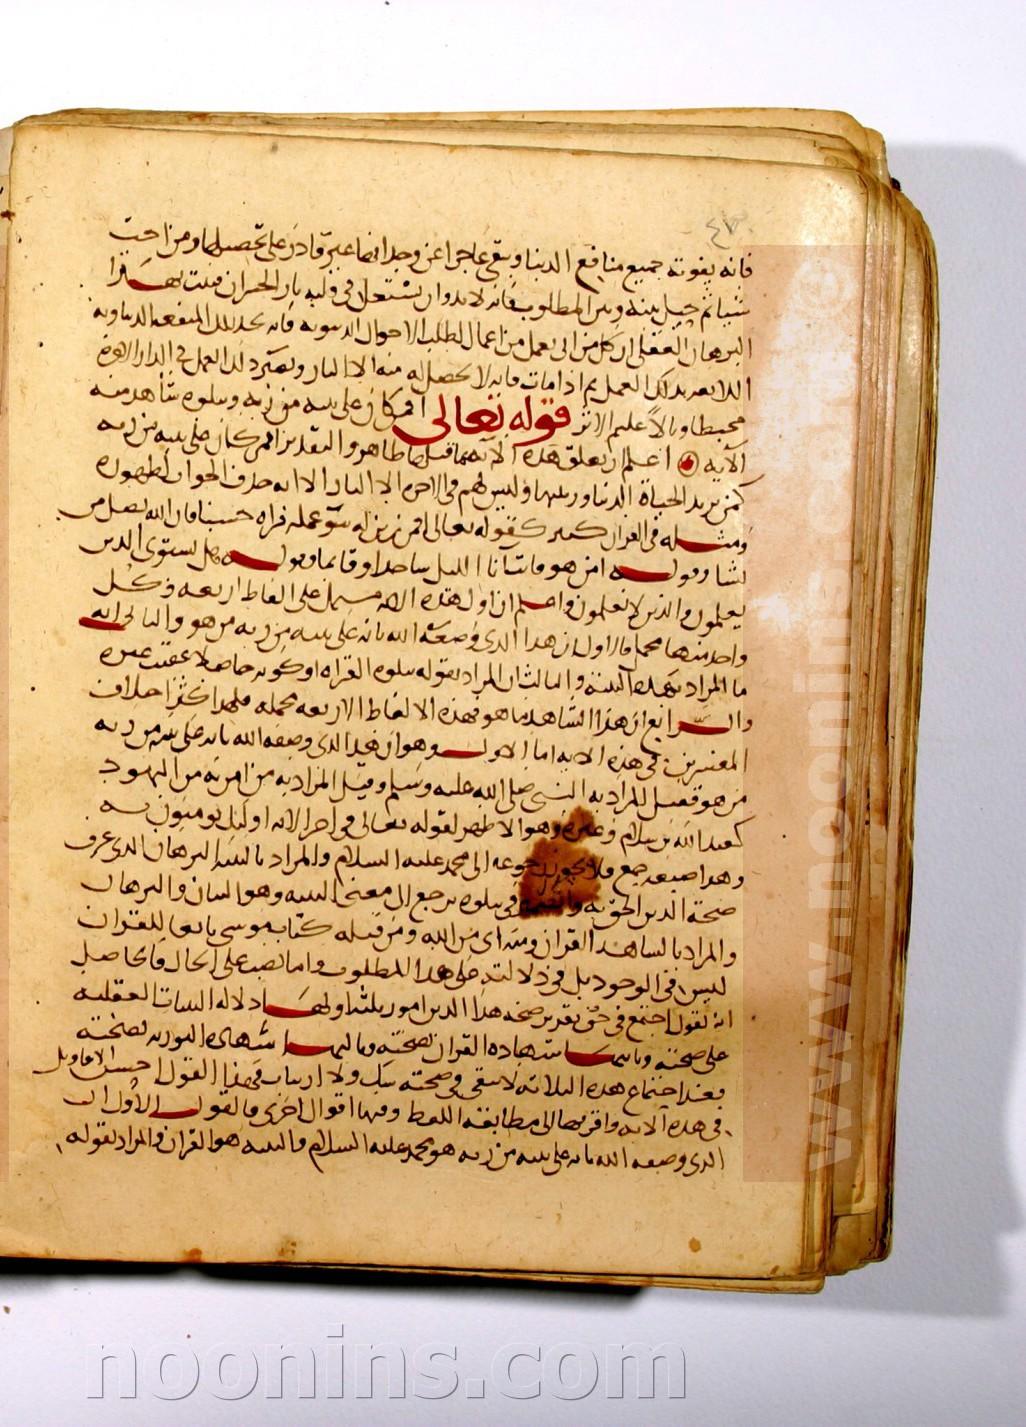 فانه يفوته جميع منافع الدنيا ويبقى عاجزا عن وجدانها غير قادر على تحصيلها ومن احب
شيا ثم حيل بينه وبين المطلوب فانه لا بد وان يشتعل في قلبه نار الحسران فثبت بهذا
البرهان العقلي ان كل من اتى بعمل من اعمال لطلب الاحوال الدنيويه فانه يجد تلك المنفعه الدنياويه
اللايقه بذلك العمل ثم اذا مات فانه لا يحصل له منه الا النار ويصير ذلك العمل في الدار الاخره
محبطا وباطلا عديم الاثر قوله تعالى افمن كان على بينه من ربه ويتلوه شاهد منه
الآيه اعلم ان تعلق هذه الآيه بما قبلها ظاهر والتقدير افمن كان على بينه من ربه
كمن يريد الحياة الدنيا وزينتها وليس لهم في الاخره الا النار الا انه حذف الجواب لظهوره
ومثله في القران كثير كقوله تعالى افمن زين له سؤ عمله فراه حسنا فان الله يضل من
يشا وقوله امن هو قانت آنا الليل ساجدا وقايما وقوله هل يستوى الذين
يعلمون والذين لا يعلمون واعلم ان اول هذه الايه مشتمل على الفاظ اربعه وكل
واحد منها مجمل فالاول ان هذا الذي وصفه الله بانه على بينه من ربه من هو والثاني انه
ما المراد بهذه البينه والثالث ان المراد بقوله يتلوه القراه او كونه حاصلا عقيب غيره
والرابع ان هذا الشاهد ما هو فهذه الالفاظ الاربعه مجمله فلهذا كثر اختلاف
المفسرين في هذه الايه اما الاول وهو ان هذا الذي وصفه الله بانه على بينه من ربه
من هو فقيل المراد به النبي صلى الله عليه وسلم وقيل المراد به من امن به من اليهود
كعبد الله بن سلام وغيره وهو الاظهر لقوله تعالى في اخر الايه اوليك يومنون به
وهذا صيغه جمع فلا يجوز رجوعه الى محمد عليه السلام والمراد بالبينه البرهان الذي عرف
صحة الدين الحق به والضمير في يتلوه يرجع الى معنى البينه وهو البيان والبرهان
والمراد بالشاهد القران ومنه اى من الله ومن قبله كتاب موسى
ليس في الوجود بل في دلالته على هذا المطلوب واماما نصب على الحال فالحاصل
انه يقول اجتمع في حق تقرير صحة هذا الدين امور ثلثه اولها دلاله البينات العقليه
على صحته وثانيها شهادة القران بصحته وثالثها شهادة التوريه بصحته
فعند اجتماع هذه الثلاثه لا يبقى في صحته شك ولا ارتياب فهذا القول احسن الاقاويل
في هذه الآيه واقربها الى مطابقه اللفظ وفيها اقوال اخرى فالقول الاول ان
الذي وصفه الله بانه على بينه من ربه هو محمد عليه السلام والبينه هو القران والمراد بقوله
www.noonins.com
noonins.com